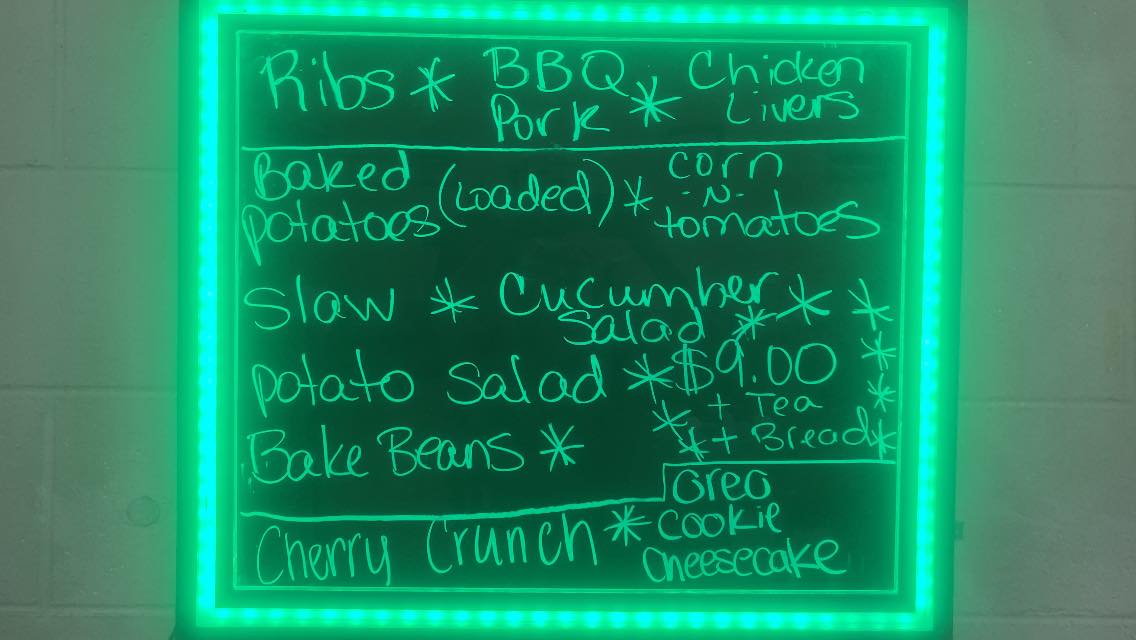 Ribs * BBQ Pork * Chicken Livers
Baked potatoes (Loaded) * corn -N- tomatoes
Slaw * Cucumber Salad * * *
potato Salad * $9.00 *
* + Tea *
Bake Beans * * + Bread *
Cherry Crunch * Oreo Cookie Cheesecake